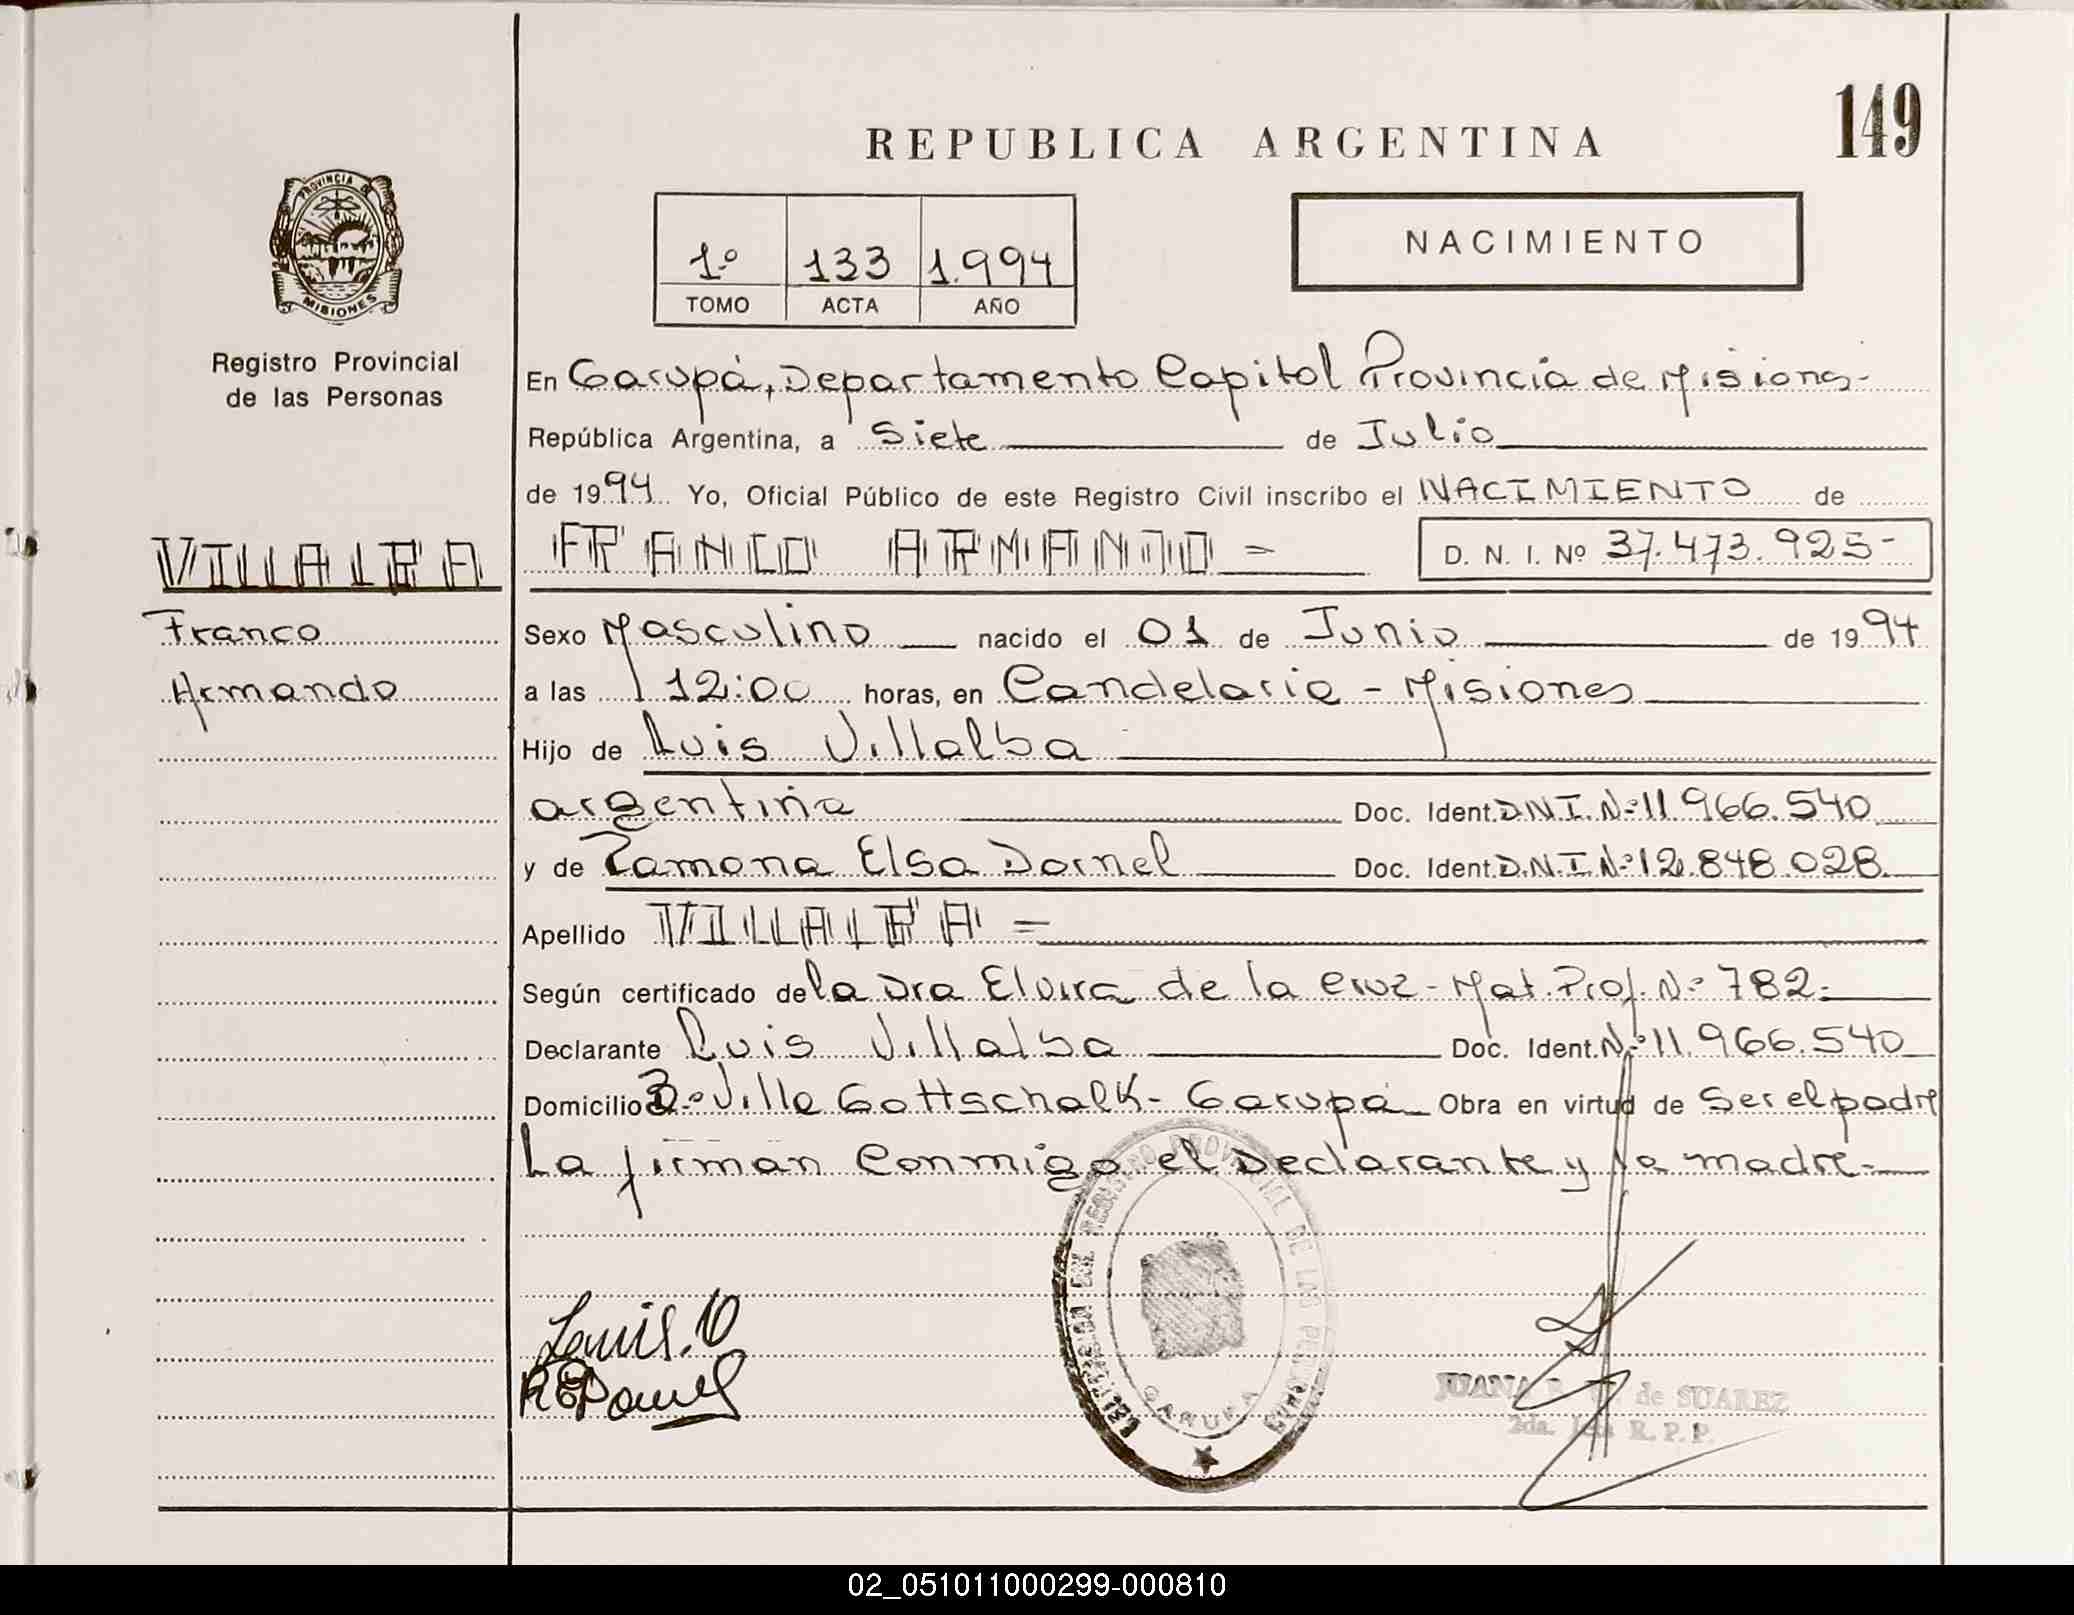 149
REPUBLICA ARGENTINA
PROVINCIA DE
MISIONES
Registro Provincial
de las Personas
1º 133 1.994
TOMO ACTA AÑO
NACIMIENTO
En Garupá, Departamento Capital Provincia de Misiones-
República Argentina, a Siete de Julio
de 1994 Yo, Oficial Público de este Registro Civil inscribo el NACIMIENTO de
VILLALBA
Franco
Armando
FRANCO ARMANDO =
D. N. I. Nº 37.473.925-
Sexo Masculino nacido el 01 de Junio de 1994
a las 12:00 horas, en Candelaria - Misiones
Hijo de Luis Villalba
argentina Doc. Ident. D.N.I. Nº 11.966.540
y de Ramona Elsa Dornel Doc. Ident. D.N.I. Nº 12.848.028
Apellido VILLALBA =
Según certificado de la Dra Elvira de la Cruz - Mat. Prof. Nº 782-
Declarante Luis Villalba Doc. Ident. Nº 11.966.540
Domicilio Bº Villa Gottschalk - Garupá Obra en virtud de Ser el padre
La firman Conmigo el Declarante y la madre-
Louis. V
DELEGACION DEL REGISTRO PROVINCIAL DE LAS PERSONAS
GARUPA
JUANA de SUAREZ
2da. R. P. P.
02_051011000299-000810